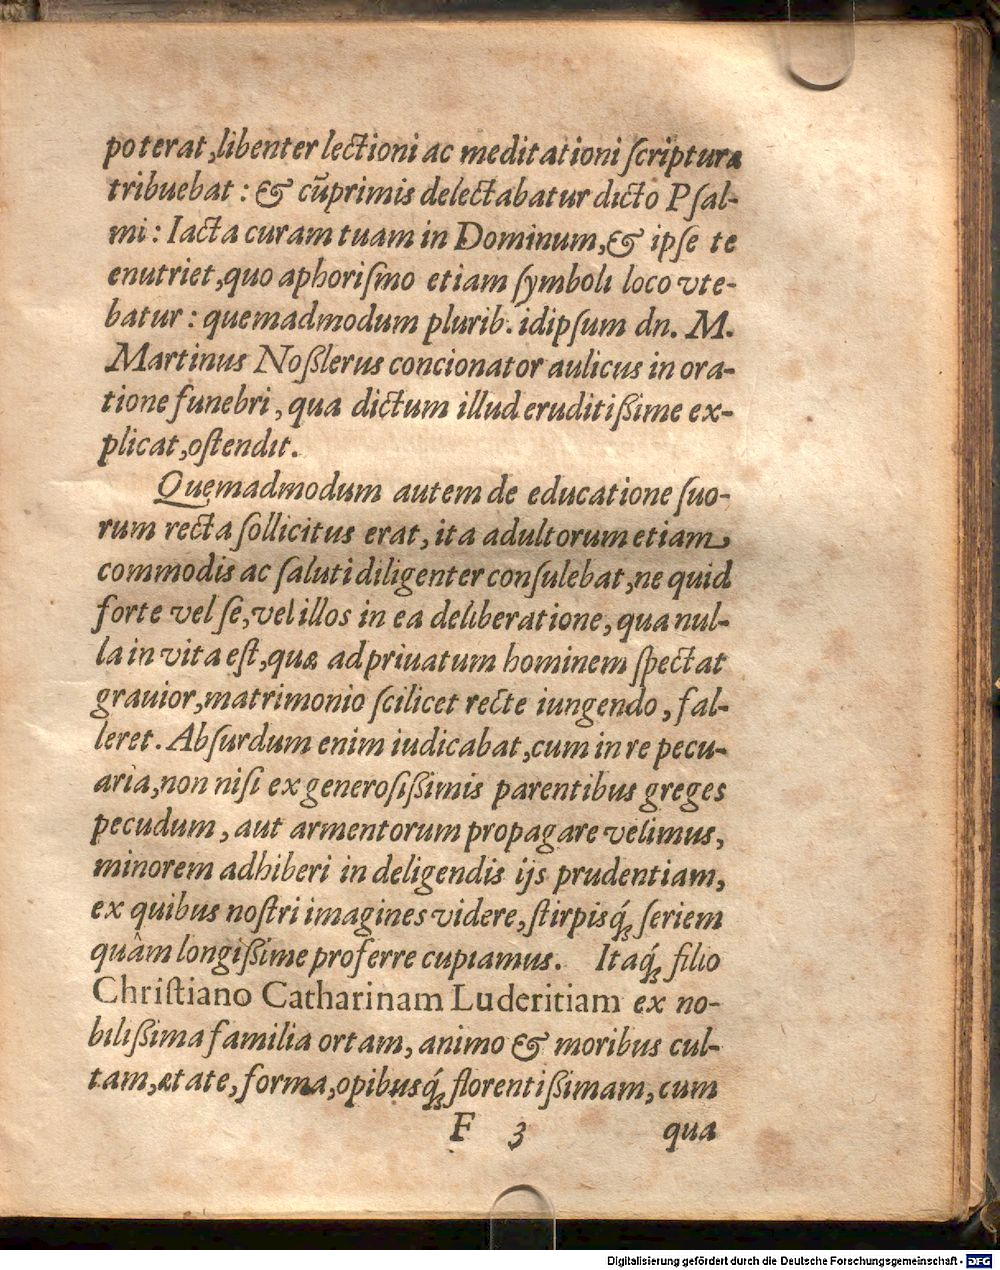 poterat, libenter lectioni ac meditationi ſcripturæ
tribuebat: & cũprimis delectabatur dicto Pſal-
mi: Iacta curam tuam in Dominum, & ipſe te
enutriet, quo aphoriſmo etiam ſymboli loco vte-
batur: quemadmodum plurib. idipſum dn. M.
Martinus Noßlerus concionator aulicus in ora-
tione funebri, qua dictum illud eruditißime ex-
plicat, oſtendit.
Quemadmodum autem de educatione ſuo-
rum recta ſollicitus erat, ita adultorum etiam
commodis ac ſaluti diligenter conſulebat, ne quid
forte vel ſe, vel illos in ea deliberatione, qua nul-
la in vita eſt, quæ ad priuatum hominem ſpectat
grauior, matrimonio ſcilicet recte iungendo, fal-
leret. Abſurdum enim iudicabat, cum in re pecu-
aria, non niſi ex generoſißimis parentibus greges
pecudum, aut armentorum propagare velimus,
minorem adhiberi in deligendis ijs prudentiam,
ex quibus noſtri imagines videre, ſtirpisq́ꝫ ſeriem
quâm longißime proferre cupiamus. Itaq́ꝫ filio
Chriſtiano Catharinam Luderitiam ex no-
bilißima familia ortam, animo & moribus cul-
tam, ætate, forma, opibusq́ꝫ florentißimam, cum
F 3 qua
Digitalisierung gefördert durch die Deutsche Forschungsgemeinschaft - DFG